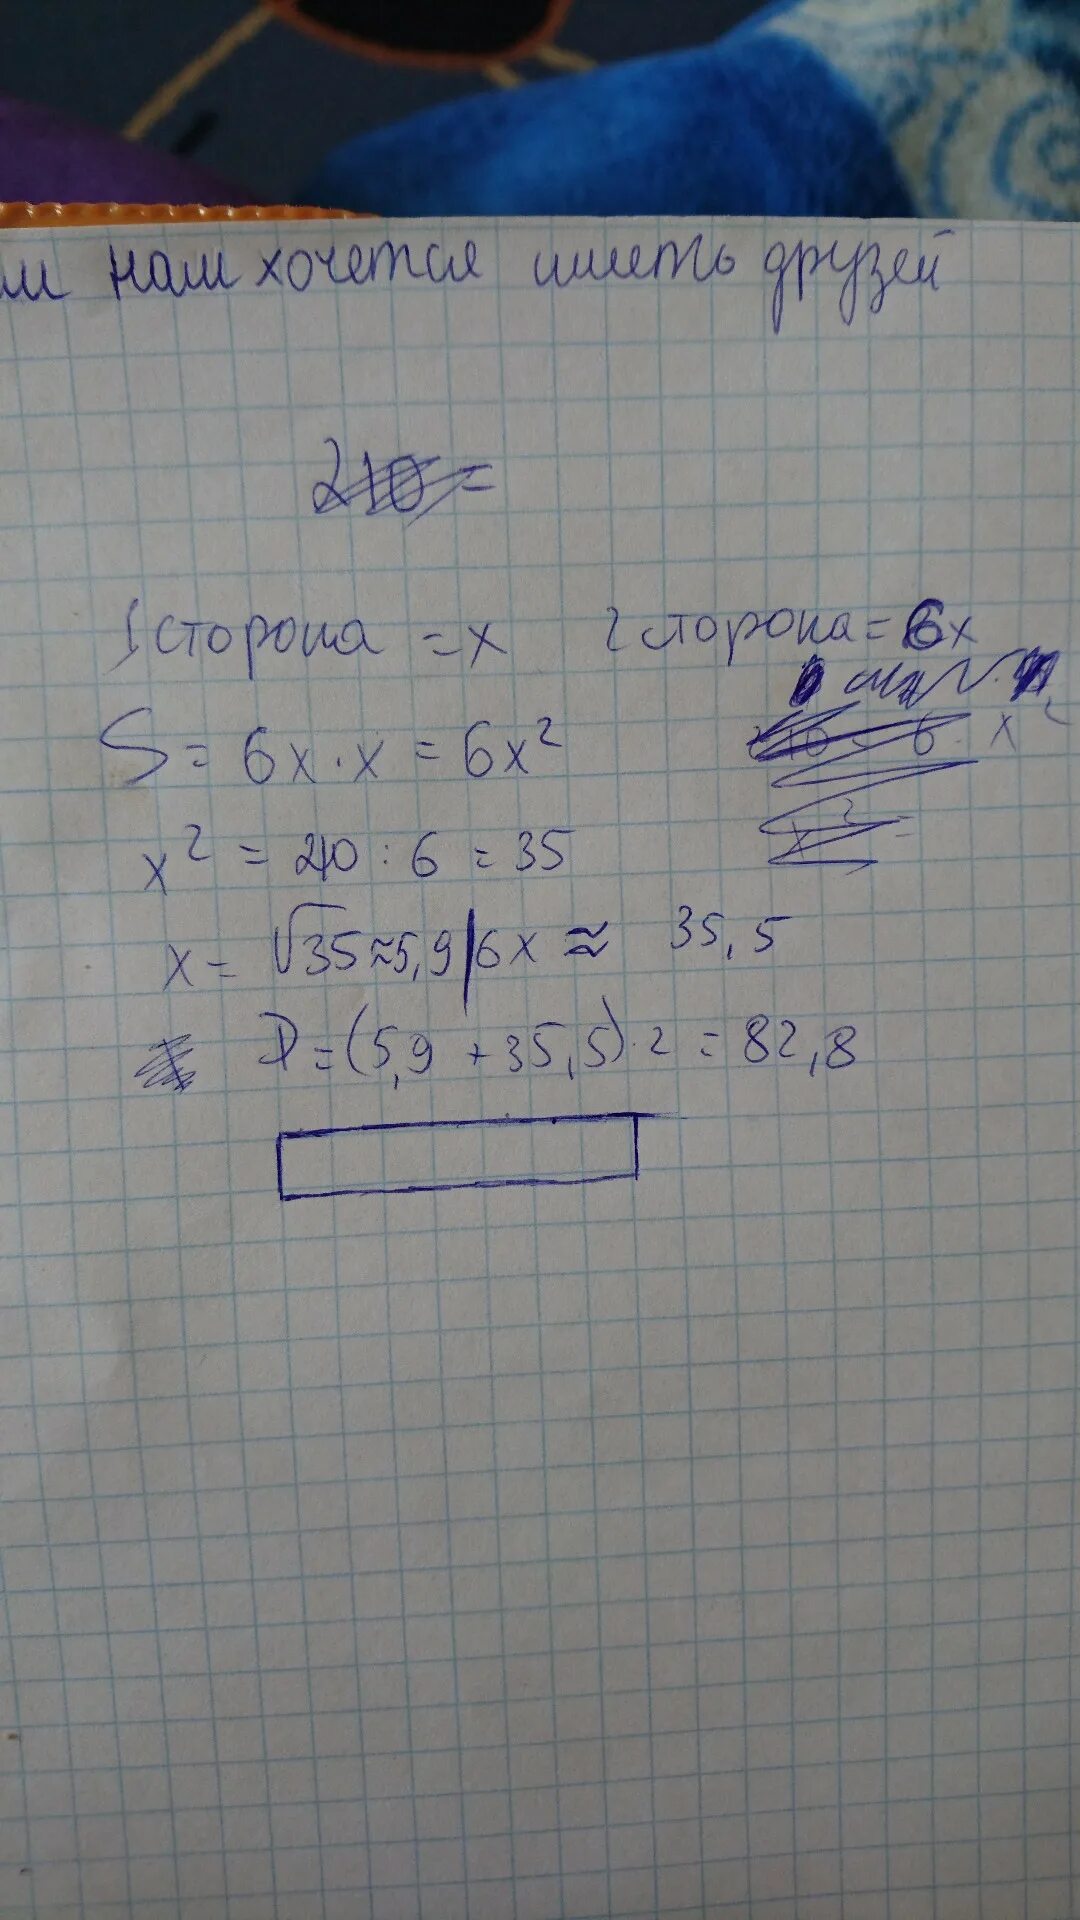 нам хочется иметь друзей
210 =
1 сторона = x 2 сторона = 6x
S = 6x · x = 6x²
x² = 210 : 6 = 35
x = √35 ≈ 5,9 | 6x ≈ 35,5
P = (5,9 + 35,5) · 2 = 82,8